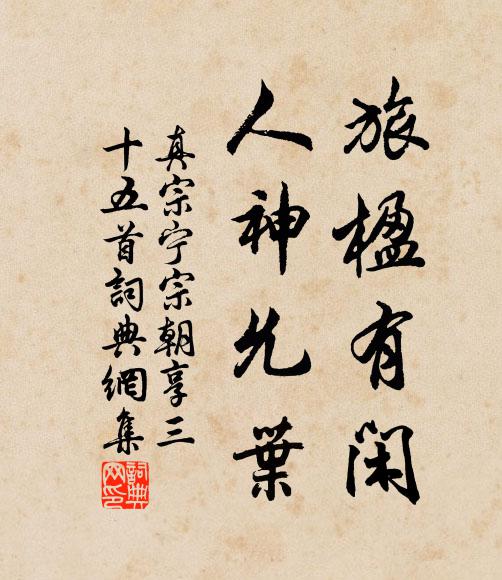 旅楹有閑
人神允葉
真宗宁宗朝享三
十五首詞典網集
詞典
网印